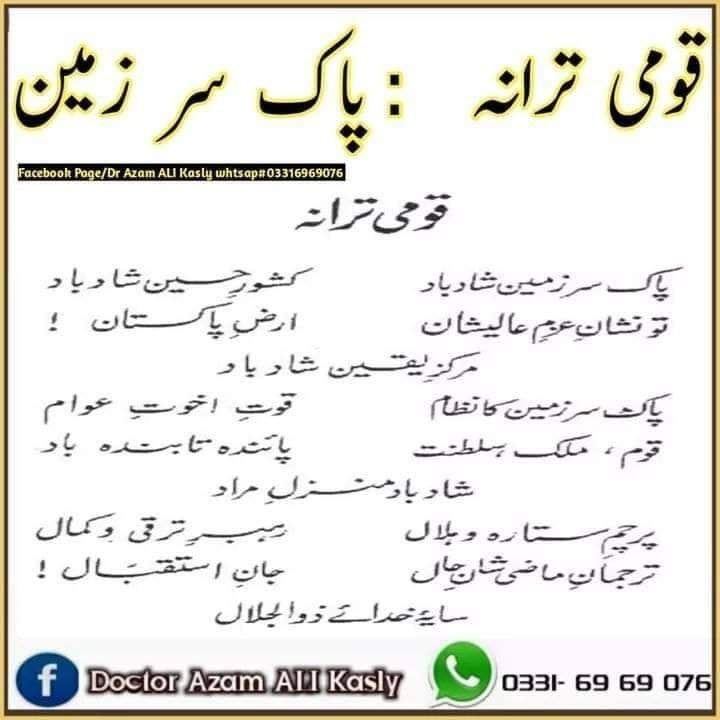 قومی ترانہ : پاک سر زمین
Facebook Page/Dr Azam ALI Kasly whtsap#03316969076
قومی ترانہ
پاک سرزمین شاد باد کشورِ حسین شاد باد
تو نشانِ عزمِ عالیشان ارضِ پاکستان !
مرکزِ یقین شاد باد
پاک سرزمین کا نظام قوتِ اخوتِ عوام
قوم ، ملک ، سلطنت پائندہ تابندہ باد
شاد باد منزلِ مراد
پرچمِ ستارہ و ہلال رہبرِ ترقی و کمال
ترجمانِ ماضی شانِ حال جانِ استقبال !
سایۂ خدائے ذوالجلال
Doctor Azam ALI Kasly 0331- 69 69 076